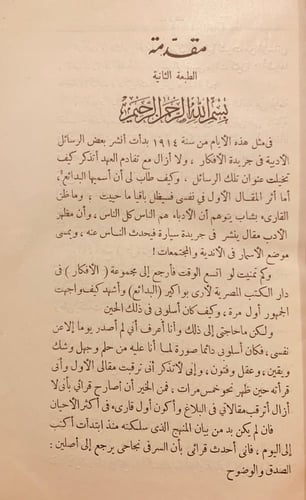 مقدمة
الطبعة الثانية
بسم الله الرحمن الرحيم
فى مثل هذه الأيام من سنة ١٩١٤ بدأت أنشر بعض الرسائل
الأدبية فى جريدة الأفكار ، ولا أزال مع تقادم العهد أتذكر كيف
تخيلت عنوان تلك الرسائل ، وكيف طاب لى أن أسميها البدائع ،
أما أثر المقال الأول فى نفسى فسيظل باقيا ما حييت ، وما ظن
القارىء بشاب يتوهم أن الأدباء هم الناس كل الناس ، وأن مظهر
الأدب مقال ينشر فى جريدة سيارة فيحدث الناس عنه ، ويمسى
موضع الأسمار فى الأندية والمجتمعات !
وكم تمنيت لو اتسع الوقت فأرجع إلى مجموعة ( الأفكار ) فى
دار الكتب المصرية لأرى بواكير (البدائع) وأشهد كيف واجهت
الجمهور أول مرة ، وكيف كان أسلوبى فى ذلك الحين
ولكن ما حاجتى إلى ذلك وأنا أعرف أنى لم أصدر يوما إلا عن
نفسى ، فكان أسلوبى دائما صورة لما أنا عليه من حلم وجهل وشك
ويقين ، وعقل وفتون ، وإنى لأتذكر أنى نزقت مقالى الأول وأنى
قرأته حين ظهر نحو خمس مرات ، فمن الخير أن أصارح قرائى بأنى لا
أزال أترقب مقالاتى فى البلاغ وأكون أول قارىء فى أكثر الأحيان
فان لم يكن بد من بيان المنهج الذى سلكته منذ ابتدأت أكتب
إلى اليوم ، فانى أحدث قرائى بأن السر فى نجاحى يرجع إلى أصلين :
الصدق والوضوح